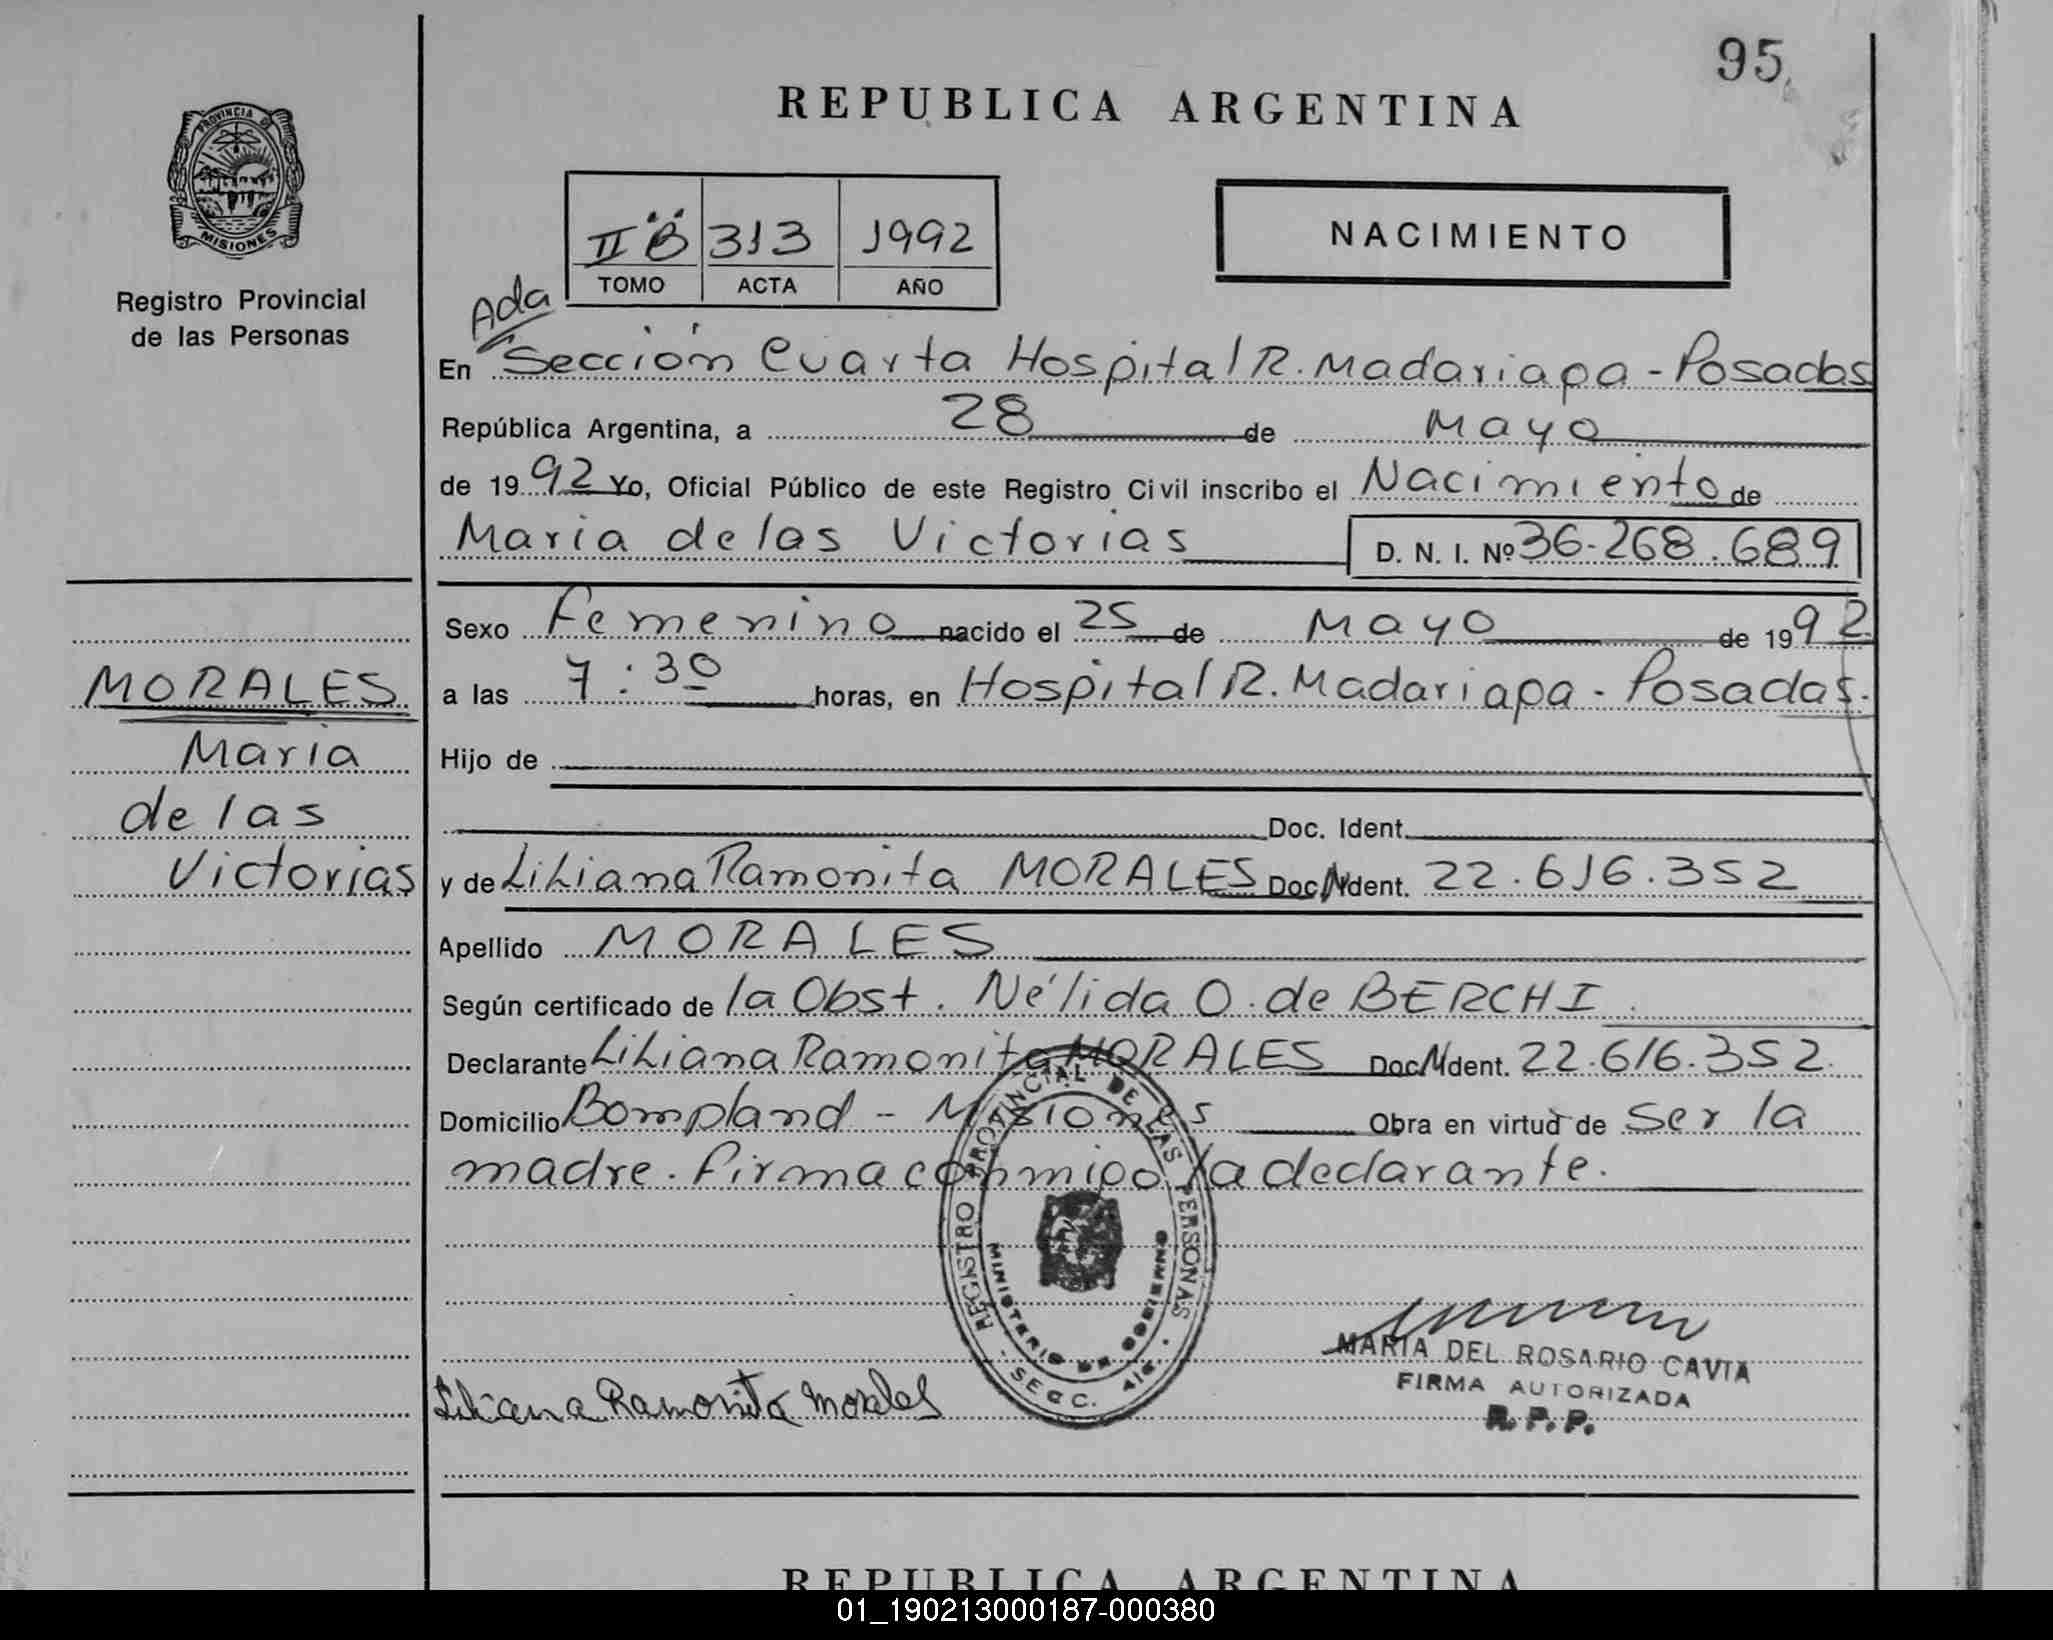 95
REPUBLICA ARGENTINA
PROVINCIA DE
MISIONES
Registro Provincial
de las Personas
II "B" 313 1992
TOMO ACTA AÑO
NACIMIENTO
Ada
En Sección Cuarta Hospital R. Madariaga - Posadas
República Argentina, a 28 de Mayo
de 1992 Yo, Oficial Público de este Registro Civil inscribo el Nacimiento de
Maria de las Victorias D. N. I. Nº 36.268.689
Sexo Femenino nacido el 25 de Mayo de 1992
a las 7:30 horas, en Hospital R. Madariaga - Posadas.
Hijo de
Doc. Ident.
y de Liliana Ramonita MORALES Doc. Ident. 22.616.352
Apellido MORALES
Según certificado de la Obst. Nélida O. de BERCHI.
Declarante Liliana Ramonita MORALES Doc. Ident. 22.616.352.
Domicilio Bompland - Misiones Obra en virtud de ser la
madre. Firma conmigo la declarante.
MORALES
Maria
de las
Victorias
REGISTRO PROVINCIAL DE LAS PERSONAS
MINISTERIO DE GOBIERNO
Liliana Ramonita Morales
MARIA DEL ROSARIO CAVIA
FIRMA AUTORIZADA
R. P. P.
REPUBLICA ARGENTINA
01_190213000187-000380